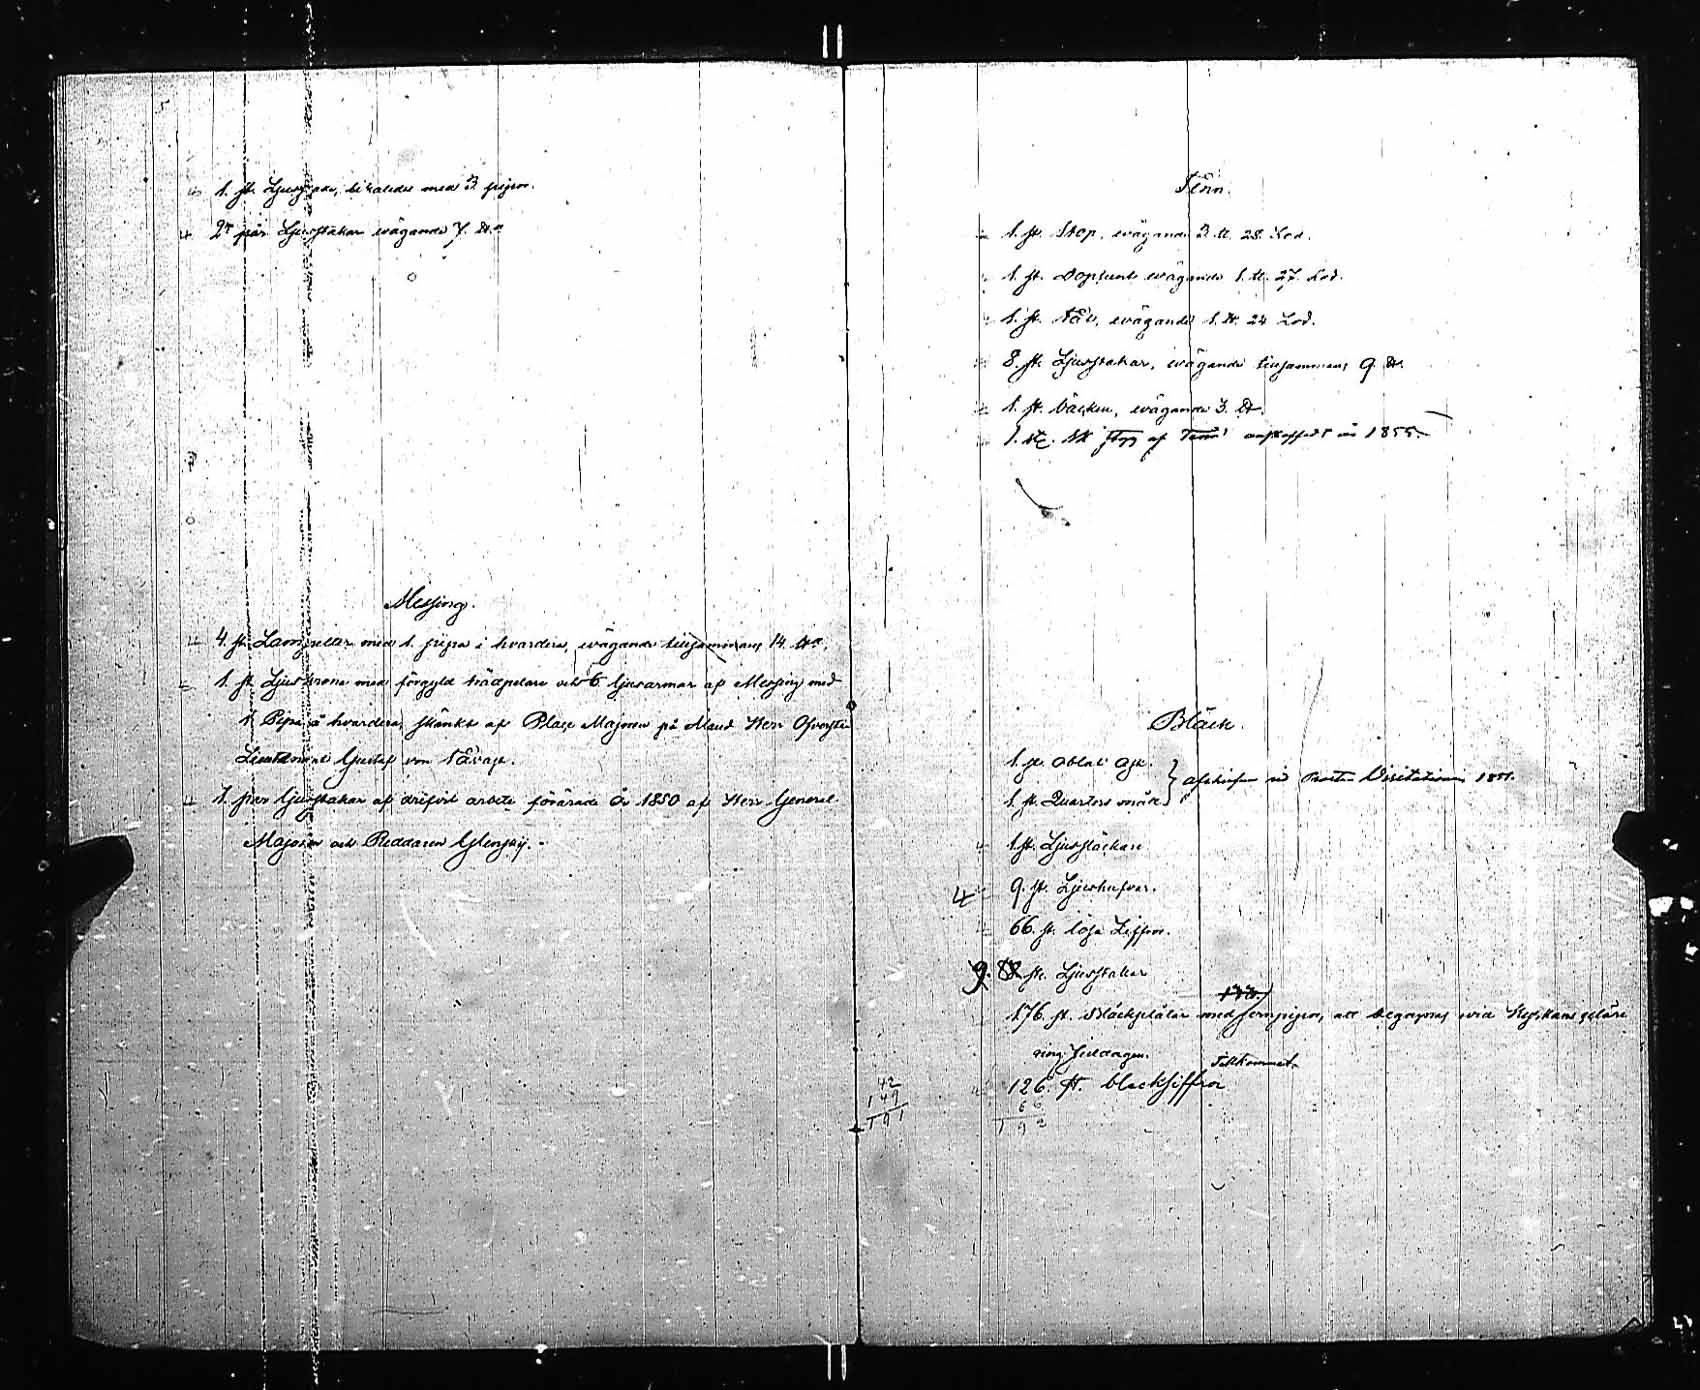 1. st. med 3 pipor.
2ne par Ljusstakar wägande 7. ℔.
Messing.
4. st. Lampetter med 1. pipa i hvardera, wägande tillsammans 14. ℔.
1. st. Ljuskrona med förgyld träpelare och 6 ljusarmar af Messing med
1 Pipa å hvardera, skänkt af Place Majoren på Åland Herr Öfverste
Lieutenant Gustaf von
1. par ljusstakar af drifvit arbete förärade År 1850 af Herr General
Majoren och Riddaren
Tenn.
1. st. Stop, wägande 3 ℔. 28. Lod.
1. st. wägande 1. ℔. 27. Lod.
1. st. Fat, wägande 1. ℔. 24 Lod.
8. st. Ljusstakar, wägande tillsammans 9 ℔.
1. st. bäcken, wägande 3. ℔.
1. af Tenn anskaffadt år 1855.
Bläck.
1. st. Oblat Ask.
1. st. Quarters mått
vid Visitationen
1 st. Ljussläckare
9. st. Ljushufvar.
66. st. lösa Ziffror.
9. st. Ljusstakar
176. st. Bläckplåtar med att begagnas wid Kyrkans
ring Juldagen.
Tillkommet
126. st. blecksiffror
66
192
42
149
191